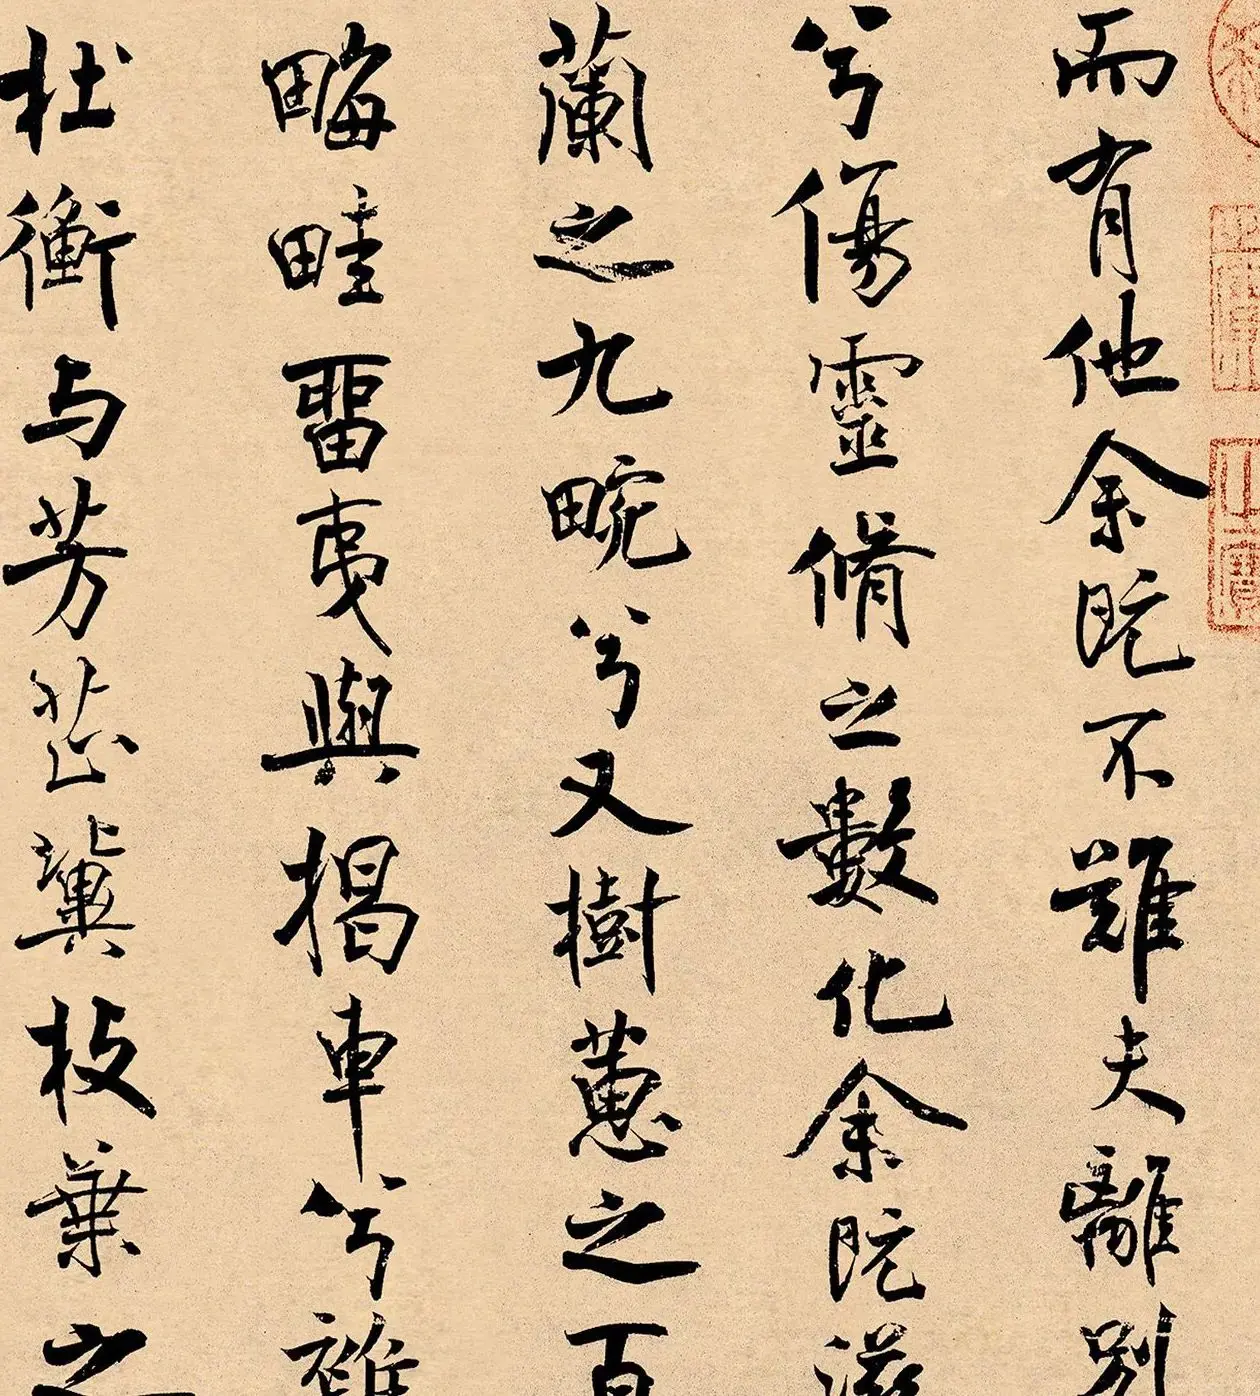 而有他余既不難夫離別
兮傷靈脩之數化余既滋
蘭之九畹兮又樹蕙之百
畮畦留夷與揭車兮雜
杜衡与芳芷冀枝葉之